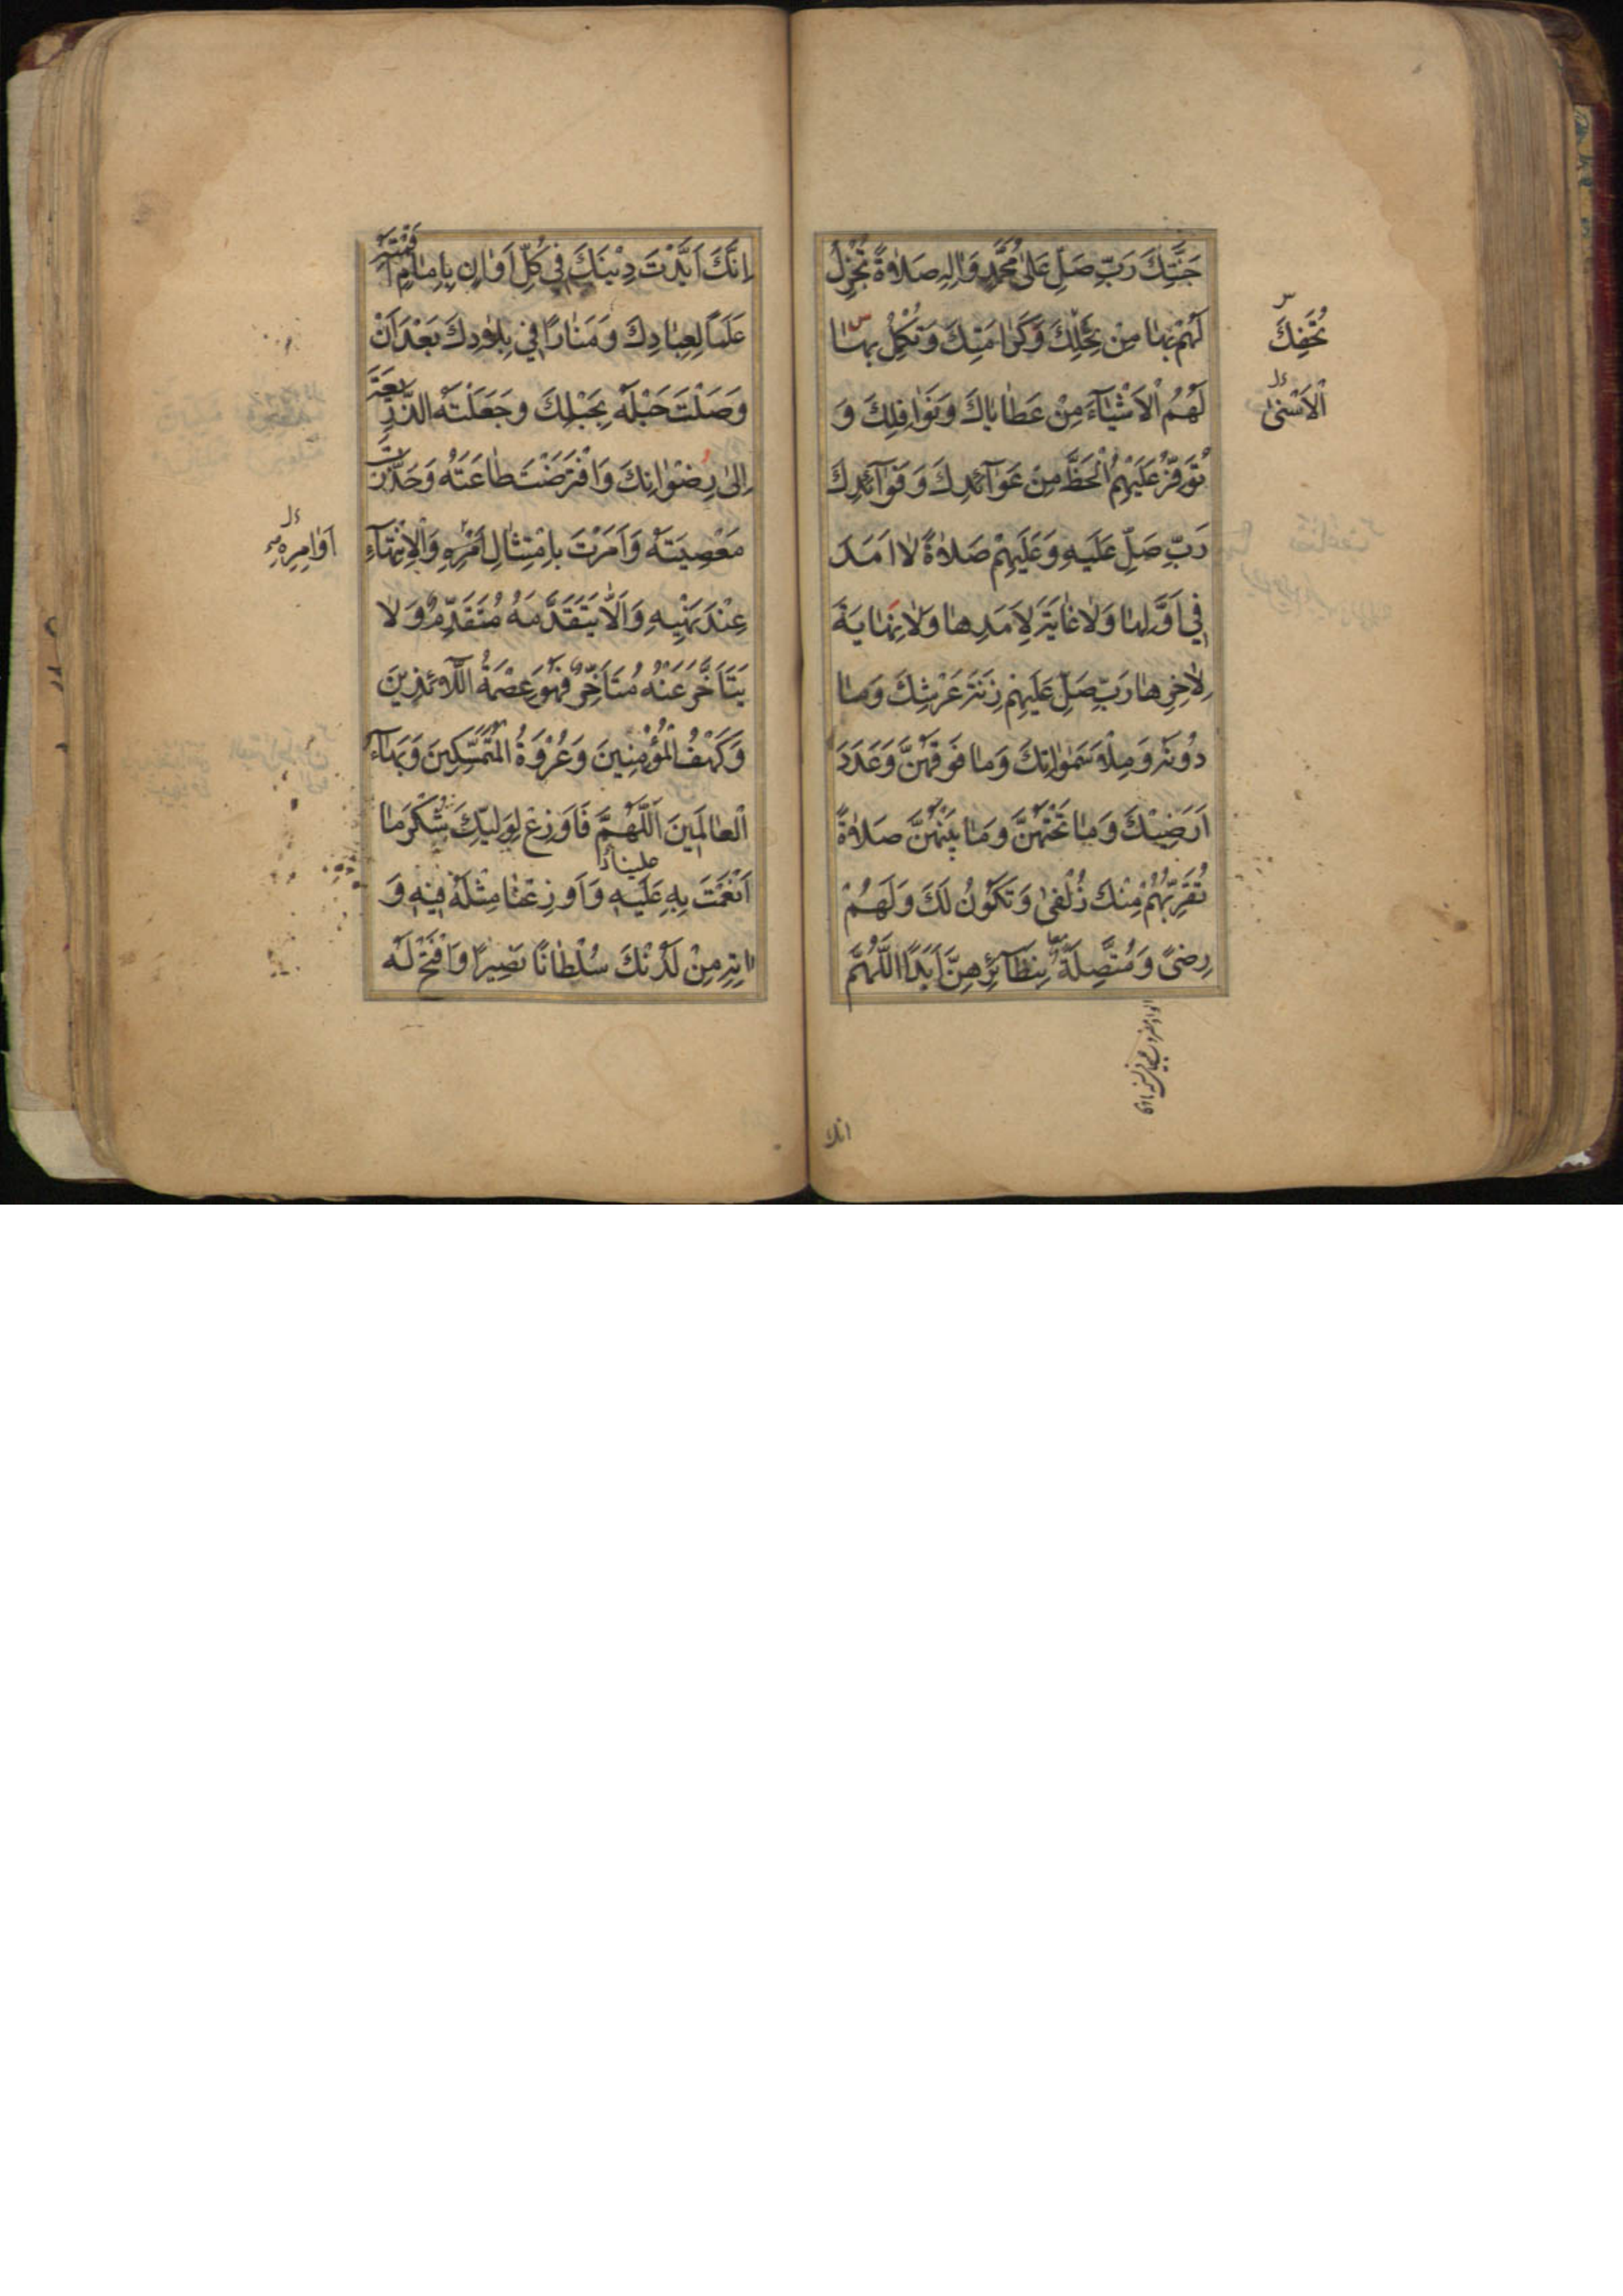 جَنَّتِكَ رَبِّ صَلِّ عَلىٰ مُحَمَّدٍ وَاٰلِهِ صَلاٰةً تُجْزِلُ
لَهُمْ بِهٰا مِنْ نِحَلِكَ وَكَرٰامَتِكَ وَتُكْمِلُ بِهٰا
تُحَفِكَ
لَهُمُ الْاَشْيٰآءَ مِنْ عَطٰايٰاكَ وَنَوٰافِلِكَ وَ
الْاَسْنىٰ
تُوَفِّرُ عَلَيْهِمُ الْحَظَّ مِنْ عَوٰآئِدِكَ وَفَوٰآئِدِكَ
رَبِّ صَلِّ عَلَيْهِ وَعَلَيْهِمْ صَلاٰةً لاٰ اَمَدَ
فِي اَوَّلِهٰا وَلاٰ غٰايَةَ لِاَمَدِهٰا وَلاٰ نِهٰايَةَ
لِاٰخِرِهٰا رَبِّ صَلِّ عَلَيْهِمْ زِنَةَ عَرْشِكَ وَمٰا
دُونَهُ وَمِلْأَ سَمٰوٰاتِكَ وَمٰا فَوْقَهُنَّ وَعَدَدَ
اَرَضِيْكَ وَمٰا تَحْتَهُنَّ وَمٰا بَيْنَهُنَّ صَلاٰةً
تُقَرِّبُهُمْ مِنْكَ زُلْفىٰ وَتَكُونُ لَكَ وَلَهُمْ
رِضىً وَمُتَّصِلَةً بِنَظٰآئِرِهِنَّ اَبَدًا اَللّٰهُمَّ
انك
اِنَّكَ اَيَّدْتَ دِيْنَكَ فِي كُلِّ اَوٰانٍ بِاِمٰامٍ اَقَمْتَهُ
عَلَمًا لِعِبٰادِكَ وَمَنٰارًا فِي بِلاٰدِكَ بَعْدَ اَنْ
وَصَلْتَ حَبْلَهُ بِحَبْلِكَ وَجَعَلْتَهُ الذَّرِيعَةَ
اِلىٰ رِضْوٰانِكَ وَافْتَرَضْتَ طٰاعَتَهُ وَحَذَّرْتَ
مَعْصِيَتَهُ وَاَمَرْتَ بِامْتِثٰالِ اَمْرِهِ وَالْاِنْتِهٰآءِ
اَوٰامِرِهِ
عِنْدَ نَهْيِهِ وَاَلاّٰ يَتَقَدَّمَهُ مُتَقَدِّمٌ وَلاٰ
يَتَاَخَّرَ عَنْهُ مُتَاَخِّرٌ فَهُوَ عِصْمَةُ اللاّٰئِذِينَ
وَكَهْفُ الْمُؤْمِنِينَ وَعُرْوَةُ الْمُتَمَسِّكِينَ وَبَهٰآءُ
الْعٰالَمِينَ اَللّٰهُمَّ فَاَوْزِعْ لِوَلِيِّكَ شُكْرَ مٰا
علينا
اَنْعَمْتَ بِهِ عَلَيْهِ وَاَوْزِعْنٰا مِثْلَهُ فِيْهِ وَ
اٰتِهِ مِنْ لَدُنْكَ سُلْطٰانًا نَصِيرًا وَافْتَحْ لَهُ